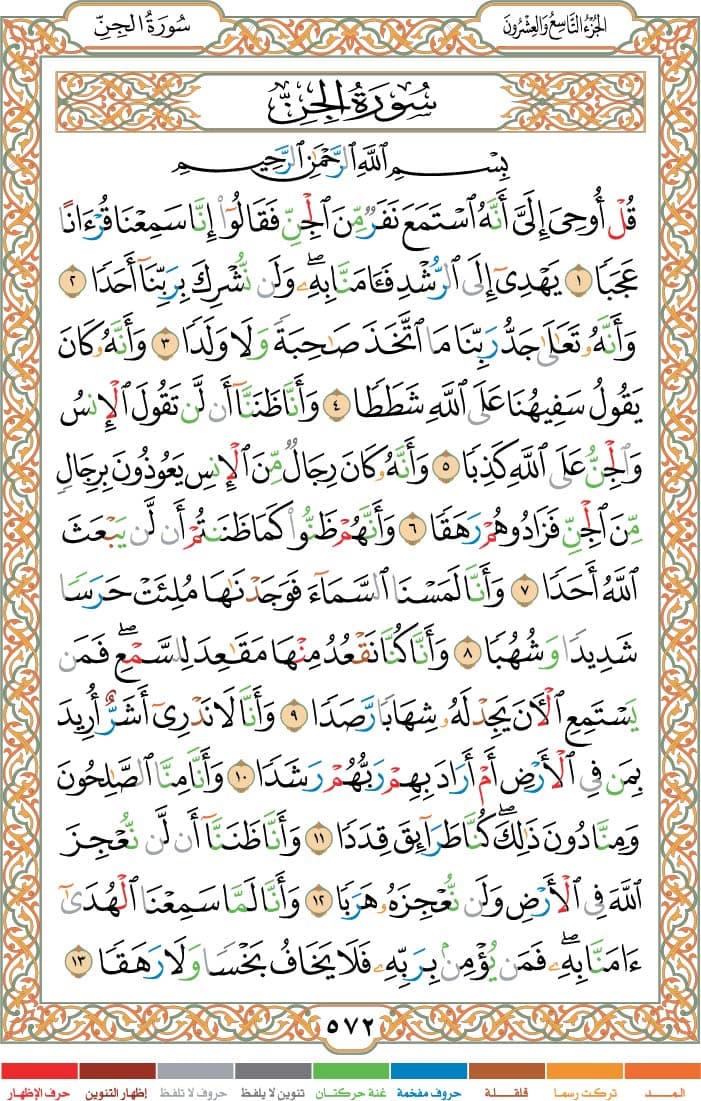 الجُزْءُ التَّاسِعُ وَالعِشْرُونَ
سُورَةُ الجِنِّ
سُورَةُ الجِنِّ
بِسْمِ ٱللَّهِ ٱلرَّحْمَٰنِ ٱلرَّحِيمِ
قُلْ أُوحِىَ إِلَىَّ أَنَّهُ ٱسْتَمَعَ نَفَرٌ مِّنَ ٱلْجِنِّ فَقَالُوٓا۟ إِنَّا سَمِعْنَا قُرْءَانًا
عَجَبًا ١ يَهْدِىٓ إِلَى ٱلرُّشْدِ فَـَٔامَنَّا بِهِۦ ۖ وَلَن نُّشْرِكَ بِرَبِّنَآ أَحَدًا ٢
وَأَنَّهُۥ تَعَٰلَىٰ جَدُّ رَبِّنَا مَا ٱتَّخَذَ صَٰحِبَةً وَلَا وَلَدًا ٣ وَأَنَّهُۥ كَانَ
يَقُولُ سَفِيهُنَا عَلَى ٱللَّهِ شَطَطًا ٤ وَأَنَّا ظَنَنَّآ أَن لَّن تَقُولَ ٱلْإِنسُ
وَٱلْجِنُّ عَلَى ٱللَّهِ كَذِبًا ٥ وَأَنَّهُۥ كَانَ رِجَالٌ مِّنَ ٱلْإِنسِ يَعُوذُونَ بِرِجَالٍ
مِّنَ ٱلْجِنِّ فَزَادُوهُمْ رَهَقًا ٦ وَأَنَّهُمْ ظَنُّوا۟ كَمَا ظَنَنتُمْ أَن لَّن يَبْعَثَ
ٱللَّهُ أَحَدًا ٧ وَأَنَّا لَمَسْنَا ٱلسَّمَآءَ فَوَجَدْنَٰهَا مُلِئَتْ حَرَسًا
شَدِيدًا وَشُهُبًا ٨ وَأَنَّا كُنَّا نَقْعُدُ مِنْهَا مَقَٰعِدَ لِلسَّمْعِ ۖ فَمَن
يَسْتَمِعِ ٱلْـَٔانَ يَجِدْ لَهُۥ شِهَابًا رَّصَدًا ٩ وَأَنَّا لَا نَدْرِىٓ أَشَرٌّ أُرِيدَ
بِمَن فِى ٱلْأَرْضِ أَمْ أَرَادَ بِهِمْ رَبُّهُمْ رَشَدًا ١٠ وَأَنَّا مِنَّا ٱلصَّٰلِحُونَ
وَمِنَّا دُونَ ذَٰلِكَ ۖ كُنَّا طَرَآئِقَ قِدَدًا ١١ وَأَنَّا ظَنَنَّآ أَن لَّن نُّعْجِزَ
ٱللَّهَ فِى ٱلْأَرْضِ وَلَن نُّعْجِزَهُۥ هَرَبًا ١٢ وَأَنَّا لَمَّا سَمِعْنَا ٱلْهُدَىٰٓ
ءَامَنَّا بِهِۦ ۖ فَمَن يُؤْمِنۢ بِرَبِّهِۦ فَلَا يَخَافُ بَخْسًا وَلَا رَهَقًا ١٣
٥٧٢
المــد تركت رسما قلقلة حروف مفخمة غنة حركتان تنوين لا يلفظ حروف لا تلفظ إظهار التنوين حرف الإظهار